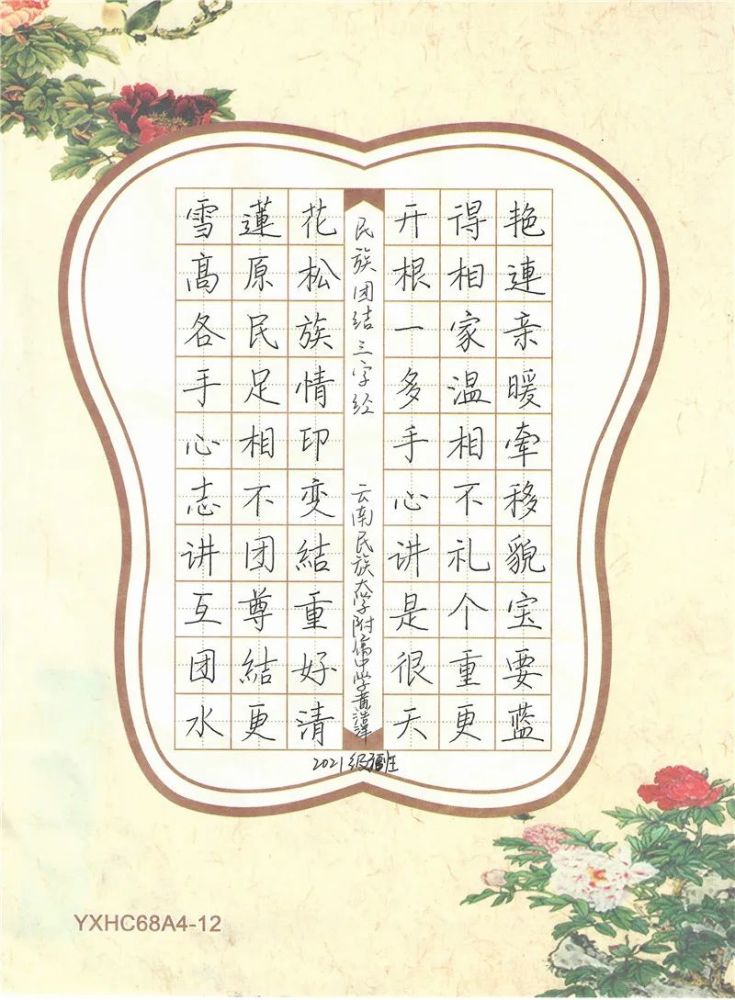 民族团结三字经
雪蓮花 开得艳
髙原松 根相連
各民族 一家亲
手足情 多温暖
心相印 手相牵
志不变 心不移
讲团結 讲礼貌
互尊重 是个宝
团結好 很重要
水更清 天更蓝
云南民族大学附属中学黄
2021级 班
YXHC68A4-12